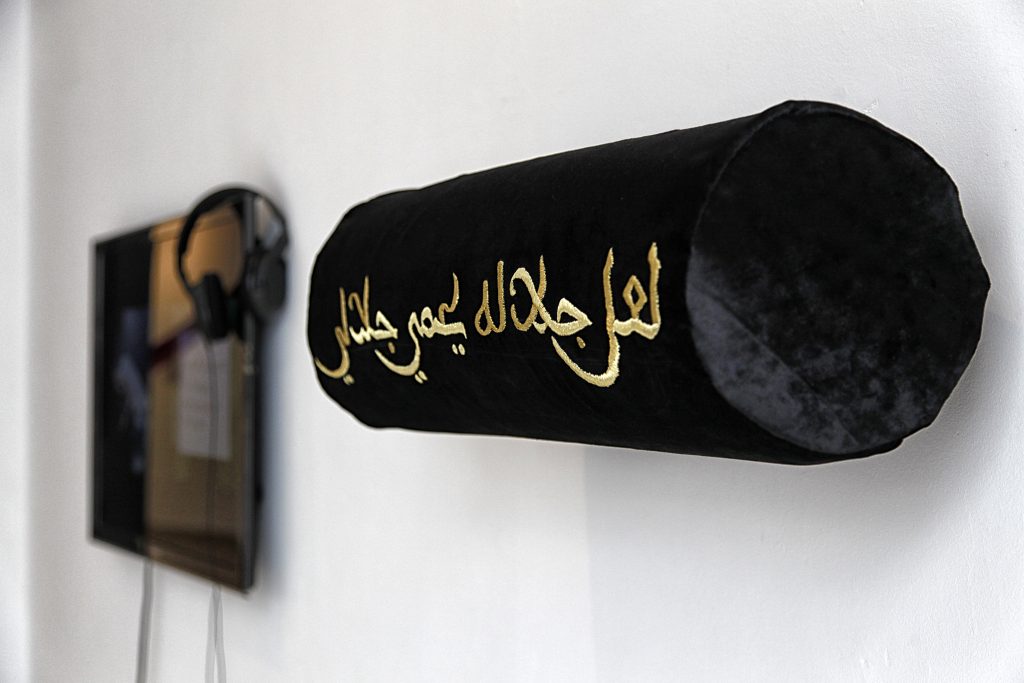 لعل جلاله يحمي جلالي